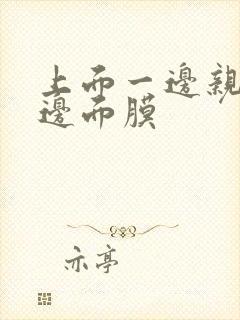 上面一邊親
邊面膜
亦亭